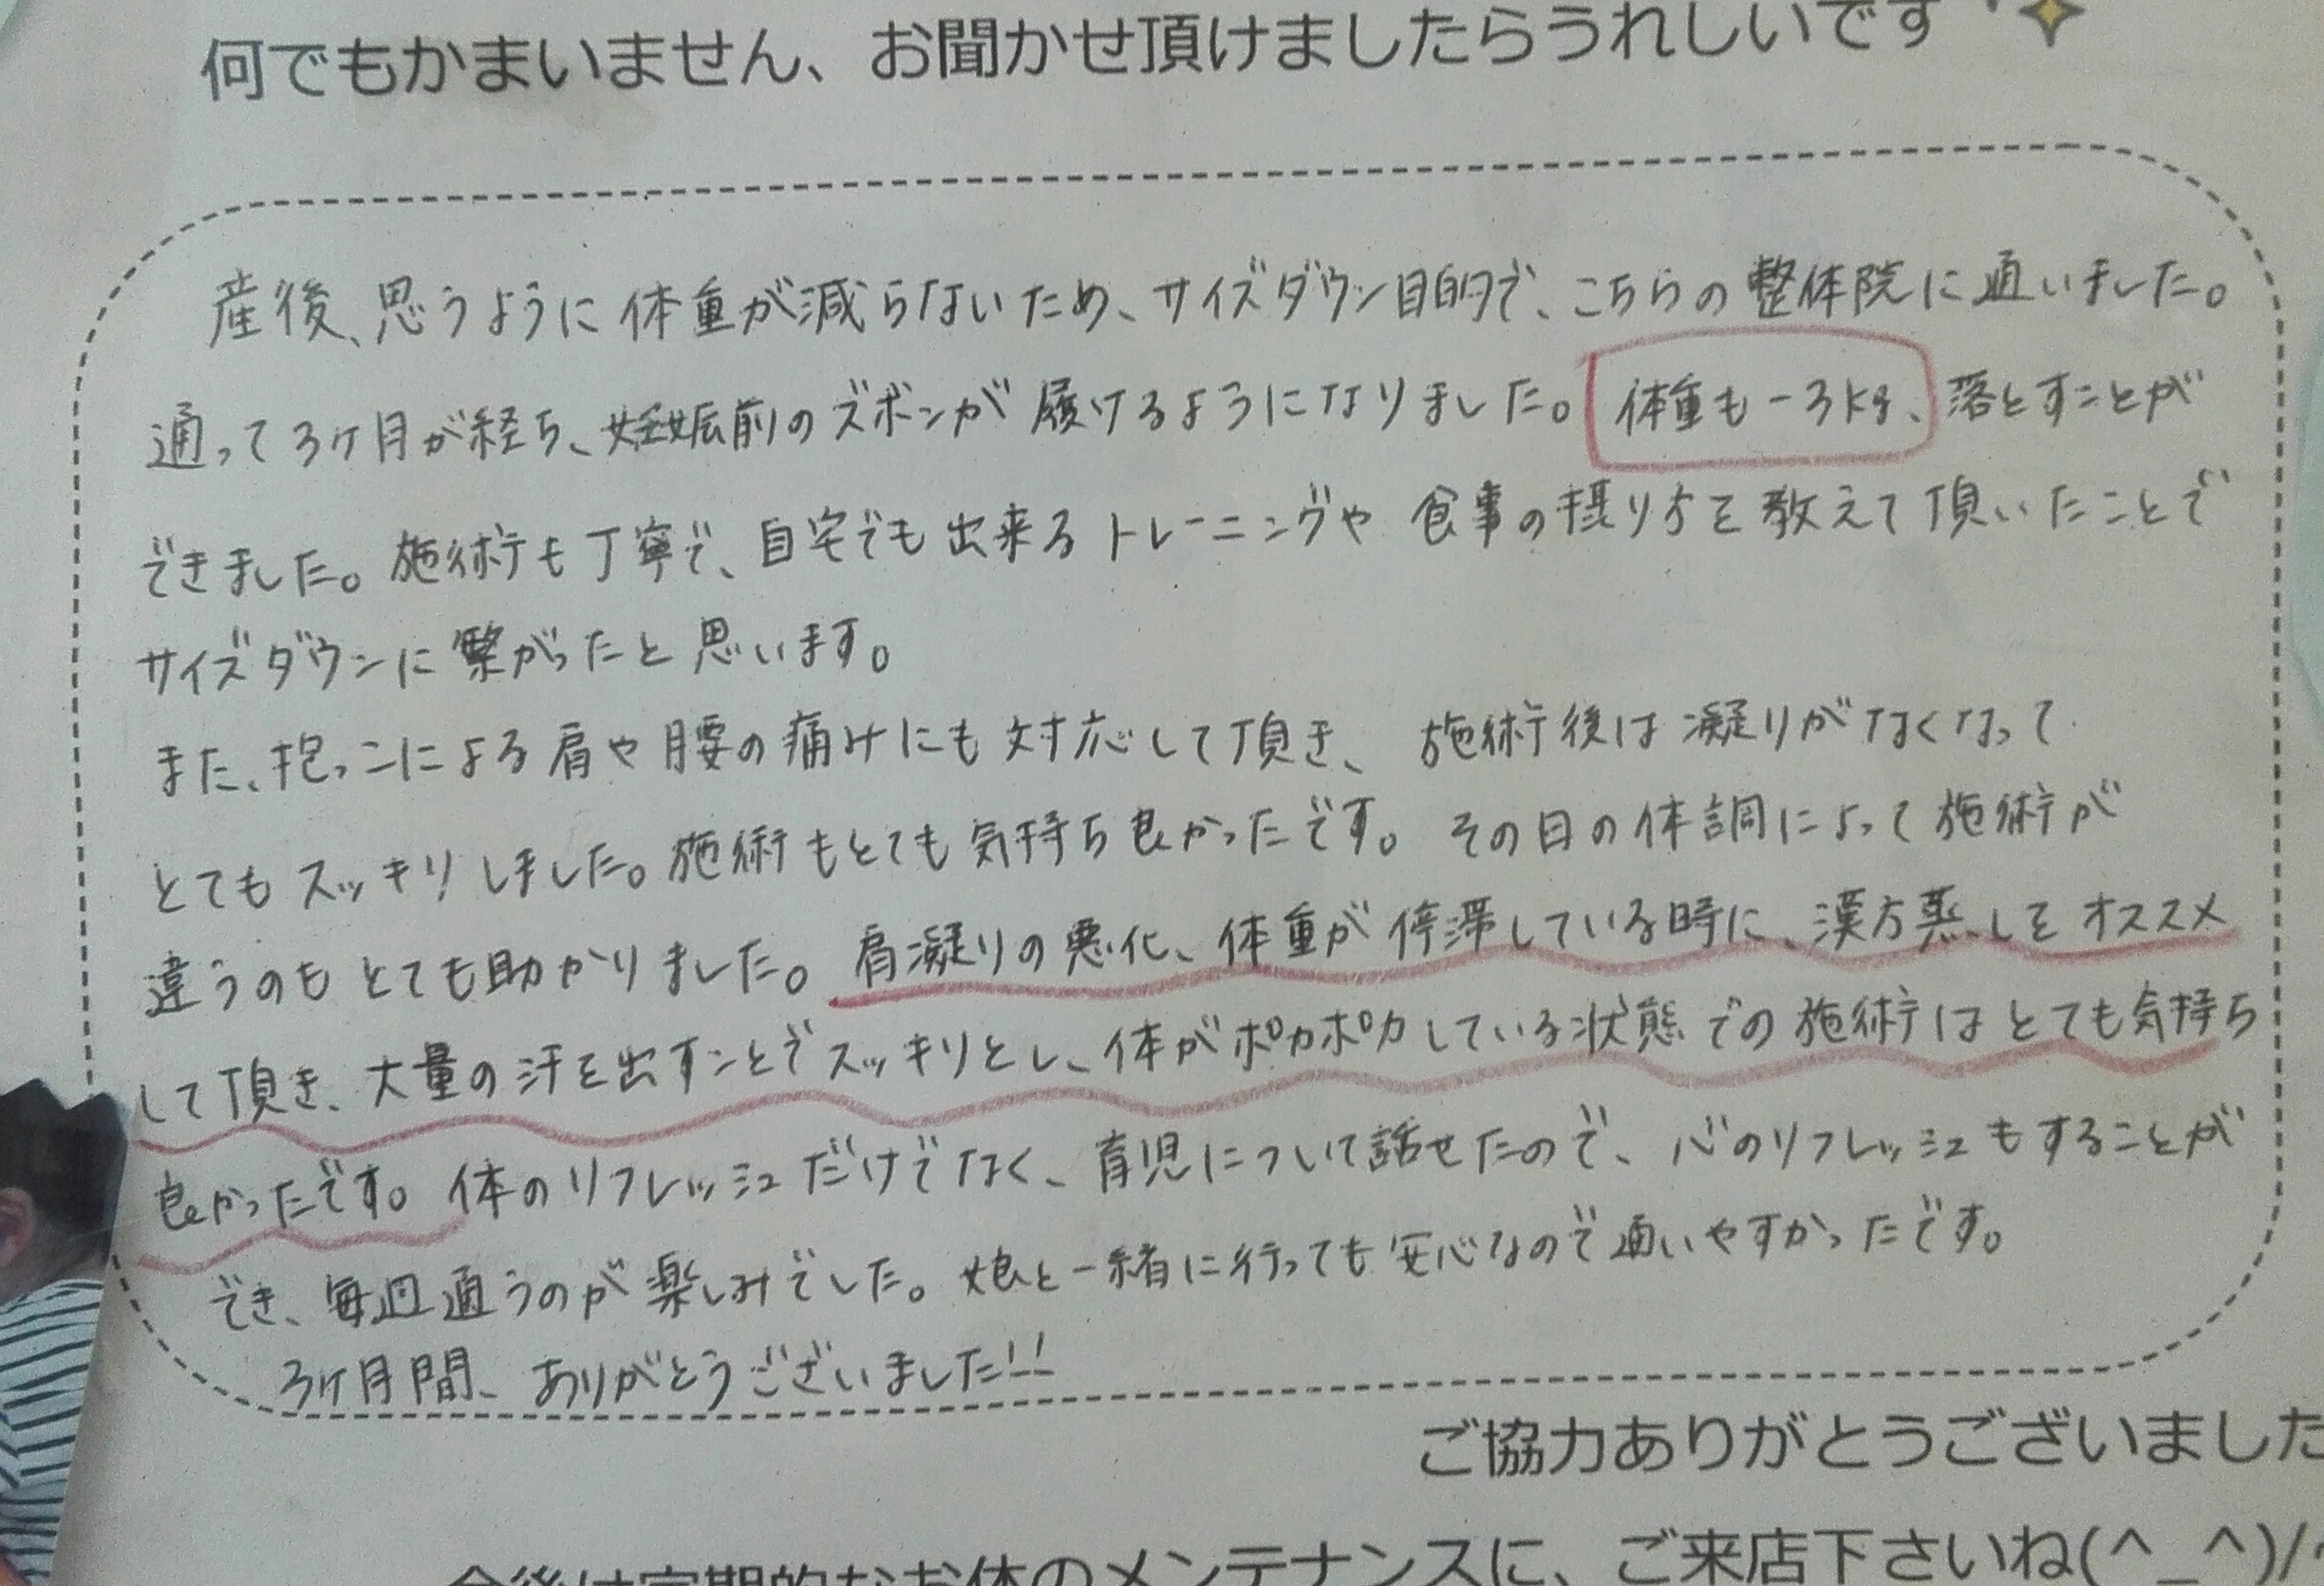 何でもかまいません、お聞かせ頂けましたらうれしいです
産後、思うように体重が減らないため、サイズダウン目的で、こちらの整体院に通いました。
通って3ヶ月が経ち、妊娠前のズボンが履けるようになりました。体重も-3kg、落とすことが
できました。施術も丁寧で、自宅でも出来るトレーニングや食事の摂り方を教えて頂いたことで
サイズダウンに繋がったと思います。
また、抱っこによる肩や腰の痛みにも対応して頂き、施術後は凝りがなくなって
とてもスッキリしました。施術もとても気持ち良かったです。その日の体調によって施術が
違うのもとても助かりました。肩凝りの悪化、体重が停滞している時に、漢方蒸しをオススメ
して頂き、大量の汗を出すことでスッキリとし、体がポカポカしている状態での施術はとても気持ち
良かったです。体のリフレッシュだけでなく、育児について話せたので、心のリフレッシュもすることが
でき、毎週通うのが楽しみでした。娘と一緒に行っても安心なので通いやすかったです。
3ヶ月間、ありがとうございました!!
ご協力ありがとうございました
今後は定期的なお体のメンテナンスに、ご来店下さいね(^_^)/